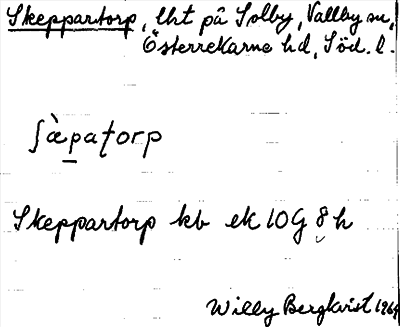 Skeppartorp, lht på Solby, Vallby sn,
Österrekarne hd, Söd. l.
ʃæ̀pat̨orp
Skeppartorp kb ek 10G 8h
Willy Bergkvist 1964